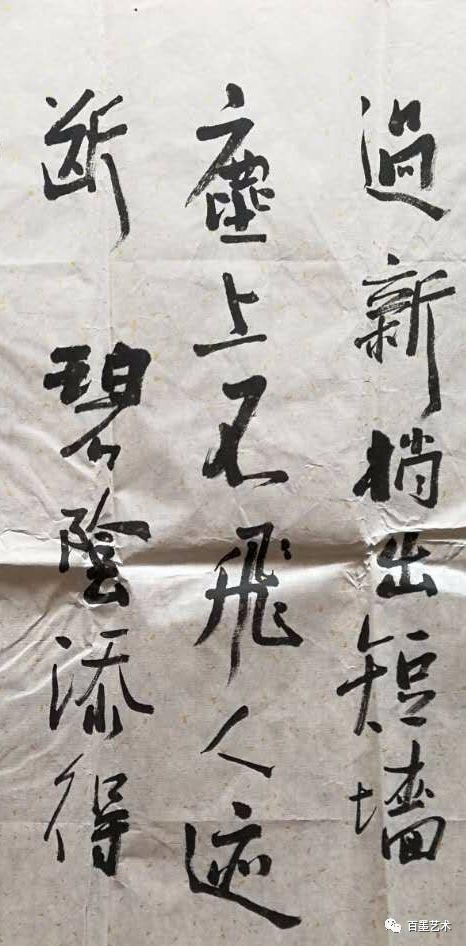 過新梢出短墻
塵上不飛人迹
断碧陰添得
百墨艺术